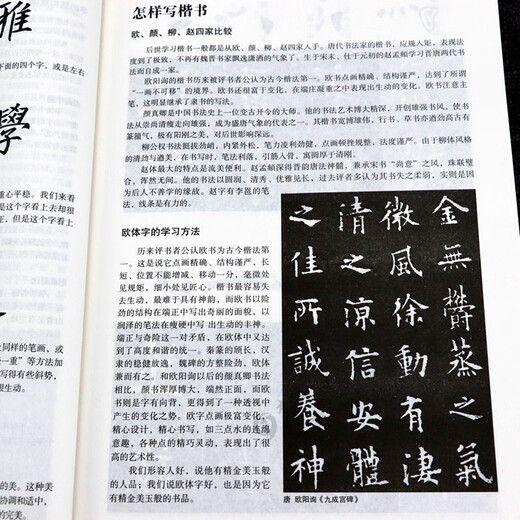 怎样写楷书
欧、颜、柳、赵四家比较
后世学习楷书一般都是从欧、颜、柳、赵四家入手。唐代书法家的楷书，应规人矩，表现法
度到了极致，不再有魏晋书家飘逸潇洒的气象了。生于宋末、仕于元初的赵孟頫学习晋唐两代书
法而自成一家。
欧阳询的楷书历来被评书者公认为古今楷法第一。欧书点画精确、结构谨严，达到了所谓
“一画不可移”的境界。欧书还很富于变化，在端庄凝重之中表现出生动变化。欧书注意主
笔，这明显继承了隶书的写法。
颜真卿是中国书法史上一位变古开今的大师。他的书法艺术博大精深，开创雄强书风，使书
法从崇尚清瘦走向雄强，成为盛唐气象的代表之一。其楷书宽博雄伟，行书、草书亦遒劲高古有
篆籀气，极有阳刚之美，对后世影响深远。
柳公权书法挺拔劲峭，内紧外松，笔力凌利劲健，点画顿挫规整，法度谨严。由于柳体风格
的清劲与遒美，在书写时，笔法利落，引筋人骨，寓圆厚于清刚。
赵体最大的特点是流美便利。赵孟頫深得晋唐诸法神髓，兼承宋书“尚意”之风，珠联璧
合，浑然无间。他的书法以圆润、清秀、优雅见长，过去评者多认为其书失之柔弱，实则是因
为后人不善学的缘故。赵字有李邕的笔
法，线条是有力的。
欧体字的学习方法
历来评书者公认欧书为古今楷法第
一。这是说它点画精确、结构谨严，长
短、位置不能增减、移动一分，毫微处
见规矩，细小处见匠心。楷书最容易失
去生动，最难于具有神韵，而欧书以险
劲的结构在端正中写出奇丽的面貌，以
润泽的笔法在瘦硬中写 出生动的丰神。
端正与奇险这一对矛盾，在欧体中又达
到了高度和谐的统一。秦篆的颀长，汉
隶的稳健放逸，魏碑的方整险劲，欧体
兼而有之。和欧阳询以后的颜真卿书法
相比，颜书浑厚博大，端然正面，而欧
书则是字有向背，更得到了一种透视中
产生的变化之势。欧字点画极富变化，
精心设计，精心书写，如三点水的连绵
意趣，各种点的精巧灵动，表现出了很
高的艺术性。
我们形容人好，说他有精金美玉般
的人品；我们说欧体字好，也是因为它
有精金美玉般的书品。
金無鬱蒸之氣
微風徐動有淒
清之涼信安體
之佳所誠養神
唐 欧阳询《九成宫碑》
雅
下面的四个字，或是左右
學
重心平稳。我们来看
这个字看上去却很
，但是这个字看上
上同样的笔画，或
一重”等方法加
写得有些斜势，
很生动。
的美。这种美
协调和适中，
的完美。